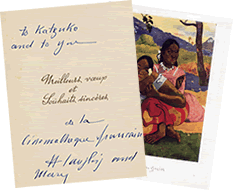 to Kazuko
and to you
Meilleurs vœux
et
Souhaits sincères
de la
Cinémathèque française
H Langlois and
Mary